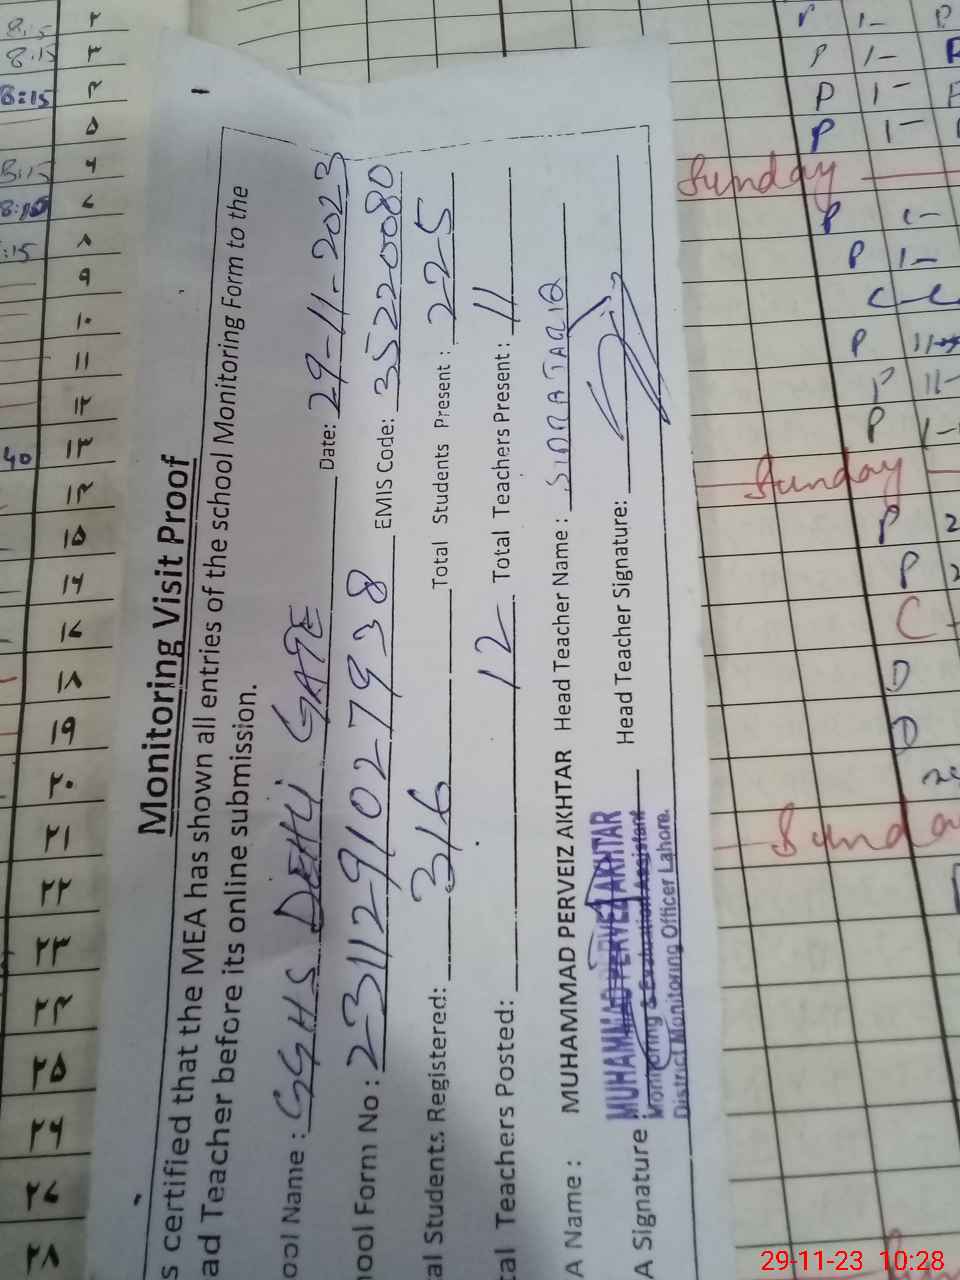 Monitoring Visit Proof
s certified that the MEA has shown all entries of the school Monitoring Form to the
ad Teacher before its online submission.
ool Name : GGHS DEHLI GATE Date: 29-11-2023
hool Form No : 23112910279 38 EMIS Code: 35220080
al Students Registered: 316 Total Students Present : 225
tal Teachers Posted: 12 Total Teachers Present : 11
A Name : MUHAMMAD PERVEIZ AKHTAR Head Teacher Name : SIDRA TARIQ
A Signature Head Teacher Signature:
MUHAMMAD PERVEZ AKHTAR
Monitoring & Evaluation Assistant
District Monitoring Officer Lahore.
8:15
8:15
8:15
8:15
:15
40
۲
۳
۴
۵
۶
۷
۸
۹
۱۰
۱۱
۱۲
۱۳
۱۴
۱۵
۱۶
۱۷
۱۸
۱۹
۲۰
۲۱
۲۲
۲۳
۲۴
۲۵
۲۶
۲۷
۲۸
P 1-
P 1-
P 1-
P 1-
Sunday
P 1-
P 1-
P
P 11-
P 1-
Sunday
P 2
P 2
C
Sunda
29-11-23 10:28